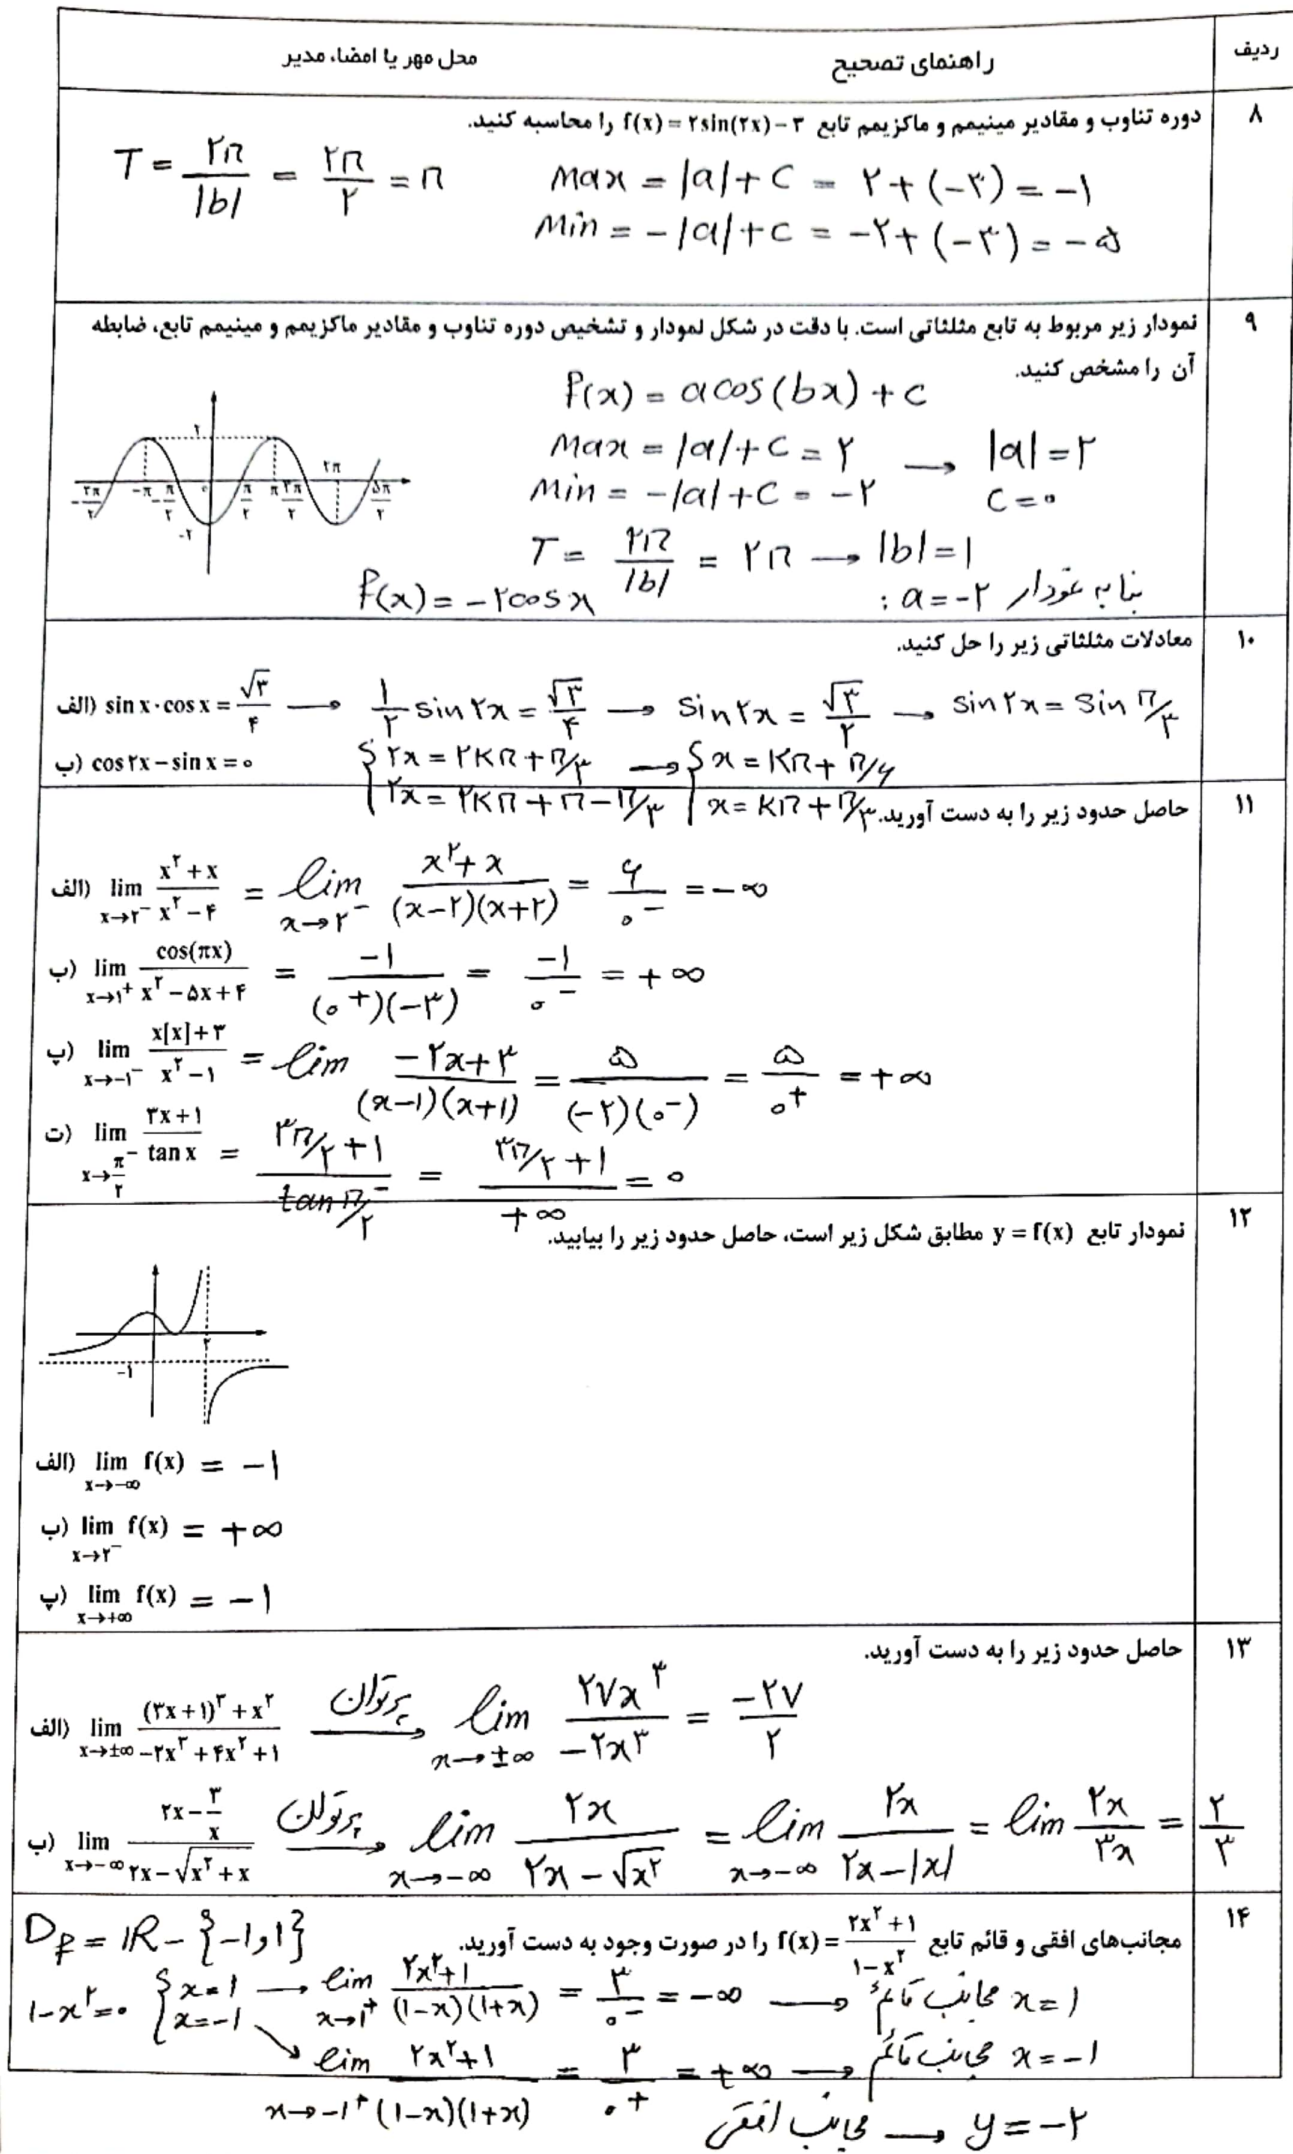 ردیف	راهنمای تصحیح	محل مهر یا امضاء مدیر
۸	دوره تناوب و مقادیر مینیمم و ماکزیمم تابع f(x) = ۲sin(۲x) − ۳ را محاسبه کنید.
T = ۲π/|b| = ۲π/۲ = π
Max = |a| + c = ۲ + (−۳) = −۱
Min = −|a| + c = −۲ + (−۳) = −۵
۹	نمودار زیر مربوط به تابع مثلثاتی است. با دقت در شکل نمودار و تشخیص دوره تناوب و مقادیر ماکزیمم و مینیمم تابع، ضابطه
آن را مشخص کنید.
f(x) = a cos(bx) + c
Max = |a| + c = ۲ → |a| = ۲
Min = −|a| + c = −۲	c = ۰
T = ۲π/|b| = ۲π → |b| = ۱
بنا به نمودار a = −۲ :
f(x) = −۲cos x
۲	−۲	−۳π/۲	−π	−π/۲	۰	π/۲	π	۳π/۲	۲π	۵π/۲
۱۰	معادلات مثلثاتی زیر را حل کنید.
الف) sin x · cos x = √۳/۴ → ۱/۲ sin ۲x = √۳/۴ → sin ۲x = √۳/۲ → sin ۲x = sin π/۳
ب) cos ۲x − sin x = ۰
{ ۲x = ۲kπ + π/۳ → { x = kπ + π/۶
۲x = ۲kπ + π − π/۳	x = kπ + π/۳
۱۱	حاصل حدود زیر را به دست آورید.
الف) lim x→۲⁻ (x² + x)/(x² − ۴) = lim x→۲⁻ (x² + x)/((x−۲)(x+۲)) = ۶/۰⁻ = −∞
ب) lim x→۱⁺ cos(πx)/(x² − ۵x + ۴) = −۱/((۰⁺)(−۳)) = −۱/۰⁻ = +∞
پ) lim x→−۱⁻ (x[x] + ۳)/(x² − ۱) = lim (−۲x + ۳)/((x−۱)(x+۱)) = ۵/((−۲)(۰⁻)) = ۵/۰⁺ = +∞
ت) lim x→π/۲⁻ (۳x + ۱)/tan x = (۳π/۲ + ۱)/tan π/۲⁻ = (۳π/۲ + ۱)/+∞ = ۰
۱۲	نمودار تابع y = f(x) مطابق شکل زیر است، حاصل حدود زیر را بیابید.
۲	−۱
الف) lim x→−∞ f(x) = −۱
ب) lim x→۲⁻ f(x) = +∞
پ) lim x→+∞ f(x) = −۱
۱۳	حاصل حدود زیر را به دست آورید.
الف) lim x→±∞ ((۳x + ۱)³ + x²)/(−۲x³ + ۴x² + ۱) پرتوان → lim x→±∞ ۲۷x³/−۲x³ = −۲۷/۲
ب) lim x→−∞ (۲x − ۳/x)/(۲x − √(x² + x)) پرتوان → lim x→−∞ ۲x/(۲x − √x²) = lim x→−∞ ۲x/(۲x − |x|) = lim ۲x/۳x = ۲/۳
۱۴	مجانب‌های افقی و قائم تابع f(x) = (۲x² + ۱)/(۱ − x²) را در صورت وجود به دست آورید.
D_f = IR − {−۱ و ۱}
۱ − x² = ۰ { x = ۱ → lim x→۱⁺ (۲x² + ۱)/((۱−x)(۱+x)) = ۳/۰⁻ = −∞ → مجانب قائم x = ۱
x = −۱ → lim x→−۱⁺ (۲x² + ۱)/((۱−x)(۱+x)) = ۳/۰⁺ = +∞ → مجانب قائم x = −۱
مجانب افقی → y = −۲